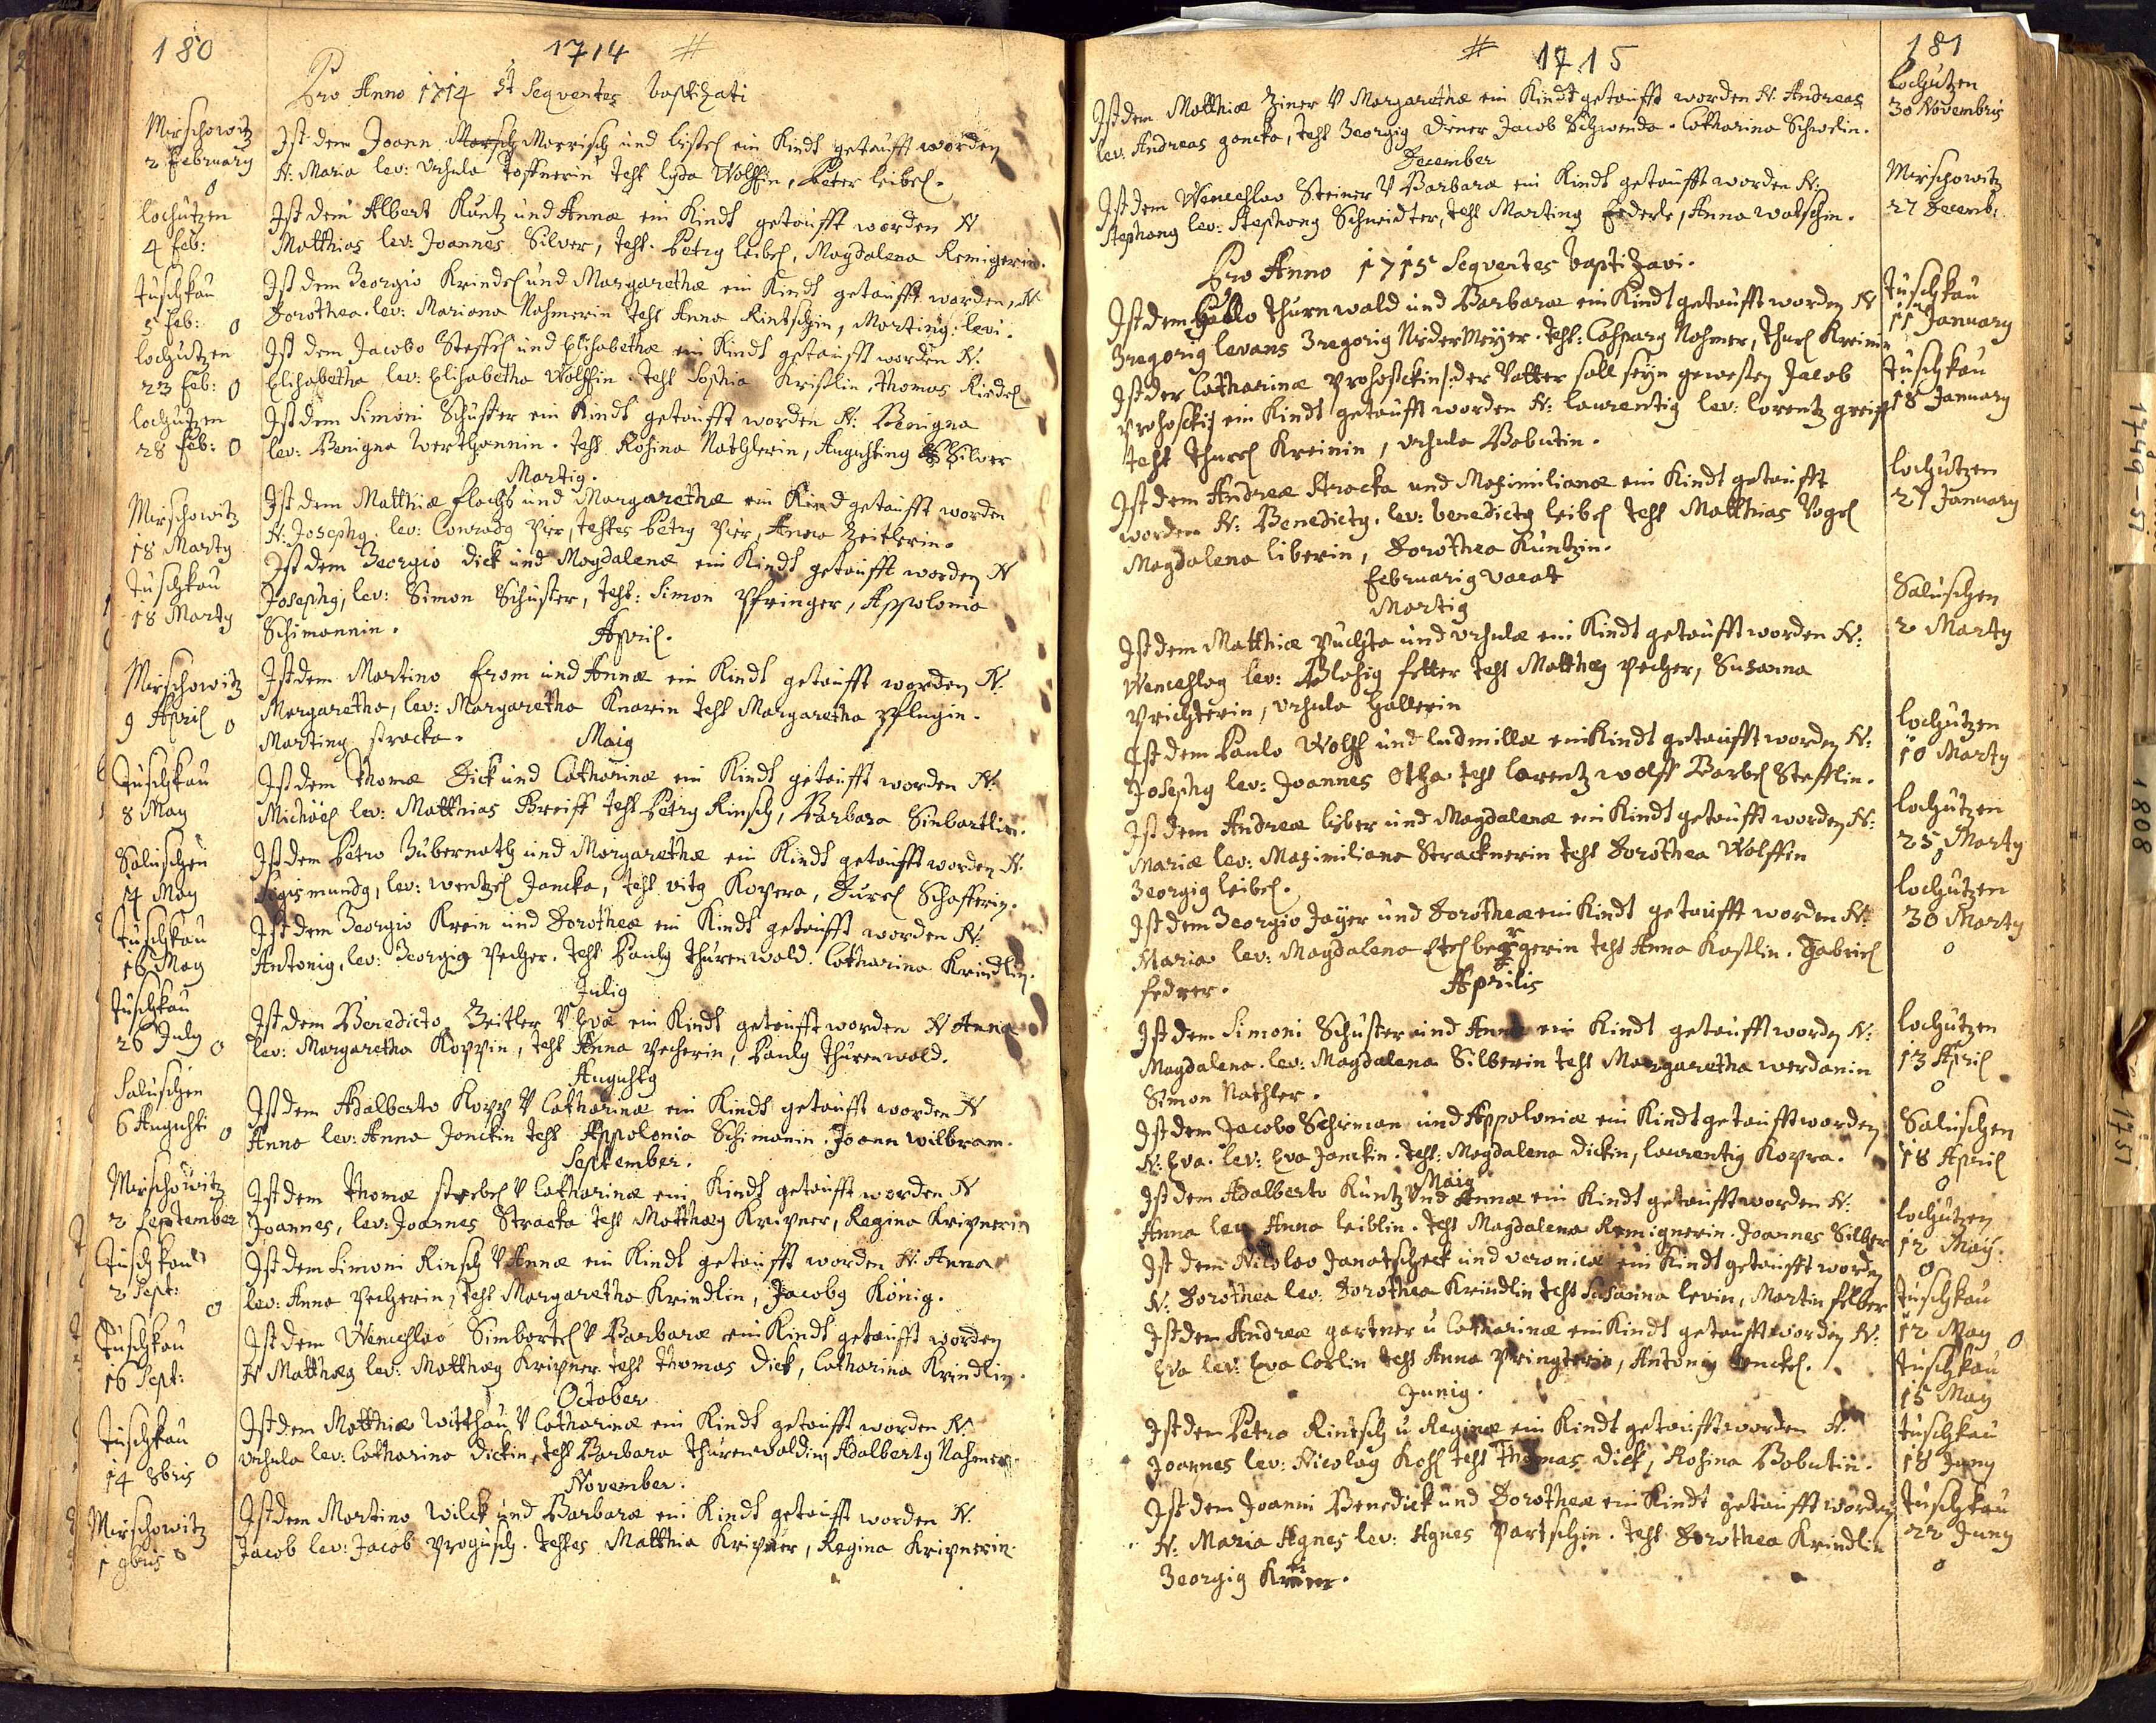 180
1714 #
Pro Anno 1714 st Seqventes baptizati
Mirschowitz
2 February
0
Ist dem Joann Morrisch und lisl ein Kindt getaufft worden
N: Maria lev: Vrsula Toffnerin Test lyda Wolffin, Peter leibel.
lochutzen
4 Feb:
Ist dem Albert Kuntz und Annæ ein Kindt getaufft worden N
Matthias lev: Joannes Silver, Test. Petrg leibel, Magdalena Remigerin.
Tuschkau
5 Feb: 0
Ist dem Georgio Krindl und Margarethæ ein Kindt getaufft worden, N
Dorothea. lev: Mariana Nahmerin Test Anna Rintschin, Marting levi.
lochutzen
23 Feb: 0
Ist dem Jacobo Steffl und Elisabethæ ein Kindt getaufft worden N.
Elisabetha lev: Elisabetha Wolffin. Test Sophia Kristlin, Thomas Riedl
lochutzen
28 Feb: 0
Ist dem Simoni Schuster ein Kindt getaufft worden N: Benigna
lev: Benigna Werthannin. Test Rosina Nathlerin, Augusting Silver
Martig.
Mirschowitz
18 Marty
Ist dem Matthiæ flachs und Margarethæ ein Kind getaufft worden
N: Josephg. lev: Conradg Pier, testes Petrg Pier, Anna Zeitlerin.
Tuschkau
18 Marty
Ist dem Georgio Dick und Magdalenæ ein Kindt getaufft worden N
Josephg, lev: Simon Schuster, Test: Simon Pfringer, Appolonia
Schimannin.
April.
Mirschowitz
9 April 0
Ist dem Martino from und Annæ ein Kindt getaufft worden N.
Margaretha, lev: Margaretha Knarin Test Margaretha Pflugin.
Marting stracka.
Maig
Tuschkau
8 May
Ist dem Thomæ Dick und Catharinæ ein Kindt getaufft worden N.
Michäel lev: Matthias Greiff Test Petrg Rinsch, Barbara Simbartlin.
Saluschen
14 May
Ist dem Petro Gubernath und Margarethæ ein Kindt getaufft worden N.
Sigismundg, lev: Wentzel Jancka, Test vitg Kopera, Durl Schafferin.
Tuschkau
16 May
Ist dem Georgio Krein und Dorotheæ ein Kindt getaufft worden N.
Antonig, lev: Georgig Pecher. Test Paulg Thurenwald. Catharina Krindlin.
Julig
Tuschkau
26 July 0
Ist dem Benedicto Zeitler V Evæ ein Kindt getaufft worden N Anna
lev: Margaretha Koppin, Test Anna Pecherin, Paulg Thurenwald.
Augustg
Saluschen
6 Augusti 0
Ist dem Adalberto Kopp V Catharinæ ein Kindt getaufft worden N
Anna lev: Anna Janckin Test Appolonia Schimanin. Joann Wilbram.
September.
Mirschowitz
2 September
Ist dem Thomæ strebel V Catharinæ ein Kindt getaufft worden N
Joannes, lev: Joannes Stracka Test Matthæg Kripner, Regina Kripnerin
Tuschkau
2 Sept:
0
Ist dem Simoni Rinsch V Annæ ein Kindt getaufft worden N: Anna
lev: Anna Pecherin, Test Margaretha Krindlin, Jacobg König.
Tuschkau
16 Sept:
Ist dem Wenceslao Simbartl V Barbaræ ein Kindt getaufft worden
N Matthæg lev: Matthæg Kripner Test Thomas Dick, Catharina Krindlin.
October
Tuschkau
14 8bris 0
Ist dem Matthiæ Witthau V Catharinæ ein Kindt getaufft worden N.
Vrsula lev: Catharina Dickin, Test Barbara Thurenwaldin, Adalbertg Nahmer.
November.
Mirschowitz
1 9bris 0
Ist dem Martino Wilck und Barbaræ ein Kindt getaufft worden N.
Jacob lev: Jacob Progusch. Testes Matthia Kripner, Regina Kripnerin.
# 1715
181
Ist dem Matthiæ Ziner V Margarethæ ein Kindt getaufft worden N. Andreas
lev: Andreas Jancka, Test Georgig Diener Jacob Schwenda. Catharina Schwelin.
lochutzen
30 Novembris
December
Ist dem Wenceslao Steiner V Barbaræ ein Kindt getaufft worden N:
Stephang lev: Stephang Schneidter, Test Marting Ederle, Anna Watschin.
Mirschowitz
27 Decemb:
Pro Anno 1715 Seqventes baptizavi.
Ist dem Paulo Thurnwald und Barbaræ ein Kindt getaufft worden N
Gregorig levans Gregorig NiderMeyer. Test: Casparg Nahmer, Thurl Kreinin
Tuschkau
11 January
Ist der Catharinæ Prohosckin /: der Vatter soll seyn gewesen Jacob
Prohoscki :/ ein Kindt getaufft worden N: Laurentig lev: Lorentz greiff
Test Thurl Kreinin, Vrsula Babutin.
Tuschkau
18 January
Ist dem Andreæ Stracka und Maximilianæ ein Kindt getaufft
worden N: Benedictg. lev: benedictg leibel Test Matthias Vogel
Magdalena liberin, Dorothea Kuntzin.
lochutzen
27 January
Februarig vacat
Martig
Ist dem Matthiæ Puchta und Vrsulæ ein Kindt getaufft worden N:
Wenceslag lev: Blasig fetter Test Matthæg Pecher, Susanna
Prichterin, Vrsula Hallerin
Saluschen
2 Marty
Ist dem Paulo Wolff und Ludmillæ ein Kindt getaufft worden N:
Josephg lev: Joannes Otha Test Lorentz Wolff Barbel Stefflin.
lochutzen
10 Marty
Ist dem Andreæ Lyber und Magdalenæ ein Kindt getaufft worden N:
Mariæ lev: Maximiliana Stracknerin Test Dorothea Wolffin
Georgig leibel.
lochutzen
25 Marty
0
Ist dem Georgio Jäyer und Dorotheæ ein Kindt getaufft worden N:
Maria lev: Magdalena Etelbergerin Test Anna Kastlin. Gabriel
fedrer.
lochutzen
30 Marty
0
Aprilis
Ist dem Simoni Schuster und Annæ ein Kindt getaufft worden N:
Magdalena. lev: Magdalena Silberin Test Margaretha Werdanin
Simon Nathler.
lochutzen
13 April
0
Ist dem Jacobo Schiman und Appoloniæ ein Kindt getaufft worden
N: Eva. lev: Eva Janckin. Test: Magdalena Dickin, Laurentig Kopra.
Saluschen
18 April
0
Maig
Ist dem Adalberto Kuntz und Annæ ein Kindt getaufft worden N:
Anna lev Anna leiblin. Test Magdalena Remignerin. Joannes Silber
lochutzen
12 May.
0
Ist dem Nicolao Janatscheck und Veronicæ ein Kindt getaufft worden
N: Dorothea lev: Dorothea Krindlin Test Susanna levin, Martin felber
Tuschkau
12 May 0
Ist dem Andreæ gartner u Catharinæ ein Kindt getaufft worden N:
Eva lev: Eva Corlin Test Anna Pringterin, Antonig
Tuschkau
15 May
Junig.
Ist dem Petro Rintsch u Reginæ ein Kindt getaufft worden N.
Joannes lev: Nicolag Kohl Test Thomas Dick, Rosina Babutin.
Tuschkau
18 Juny
Ist dem Joanni Benedick und Dorotheæ ein Kindt getaufft worden
N: Maria Agnes lev: Agnes Partschin. Test Dorothea Krindlin
Georgig
Tuschkau
22 Juny
0
1749-51
1808
1751